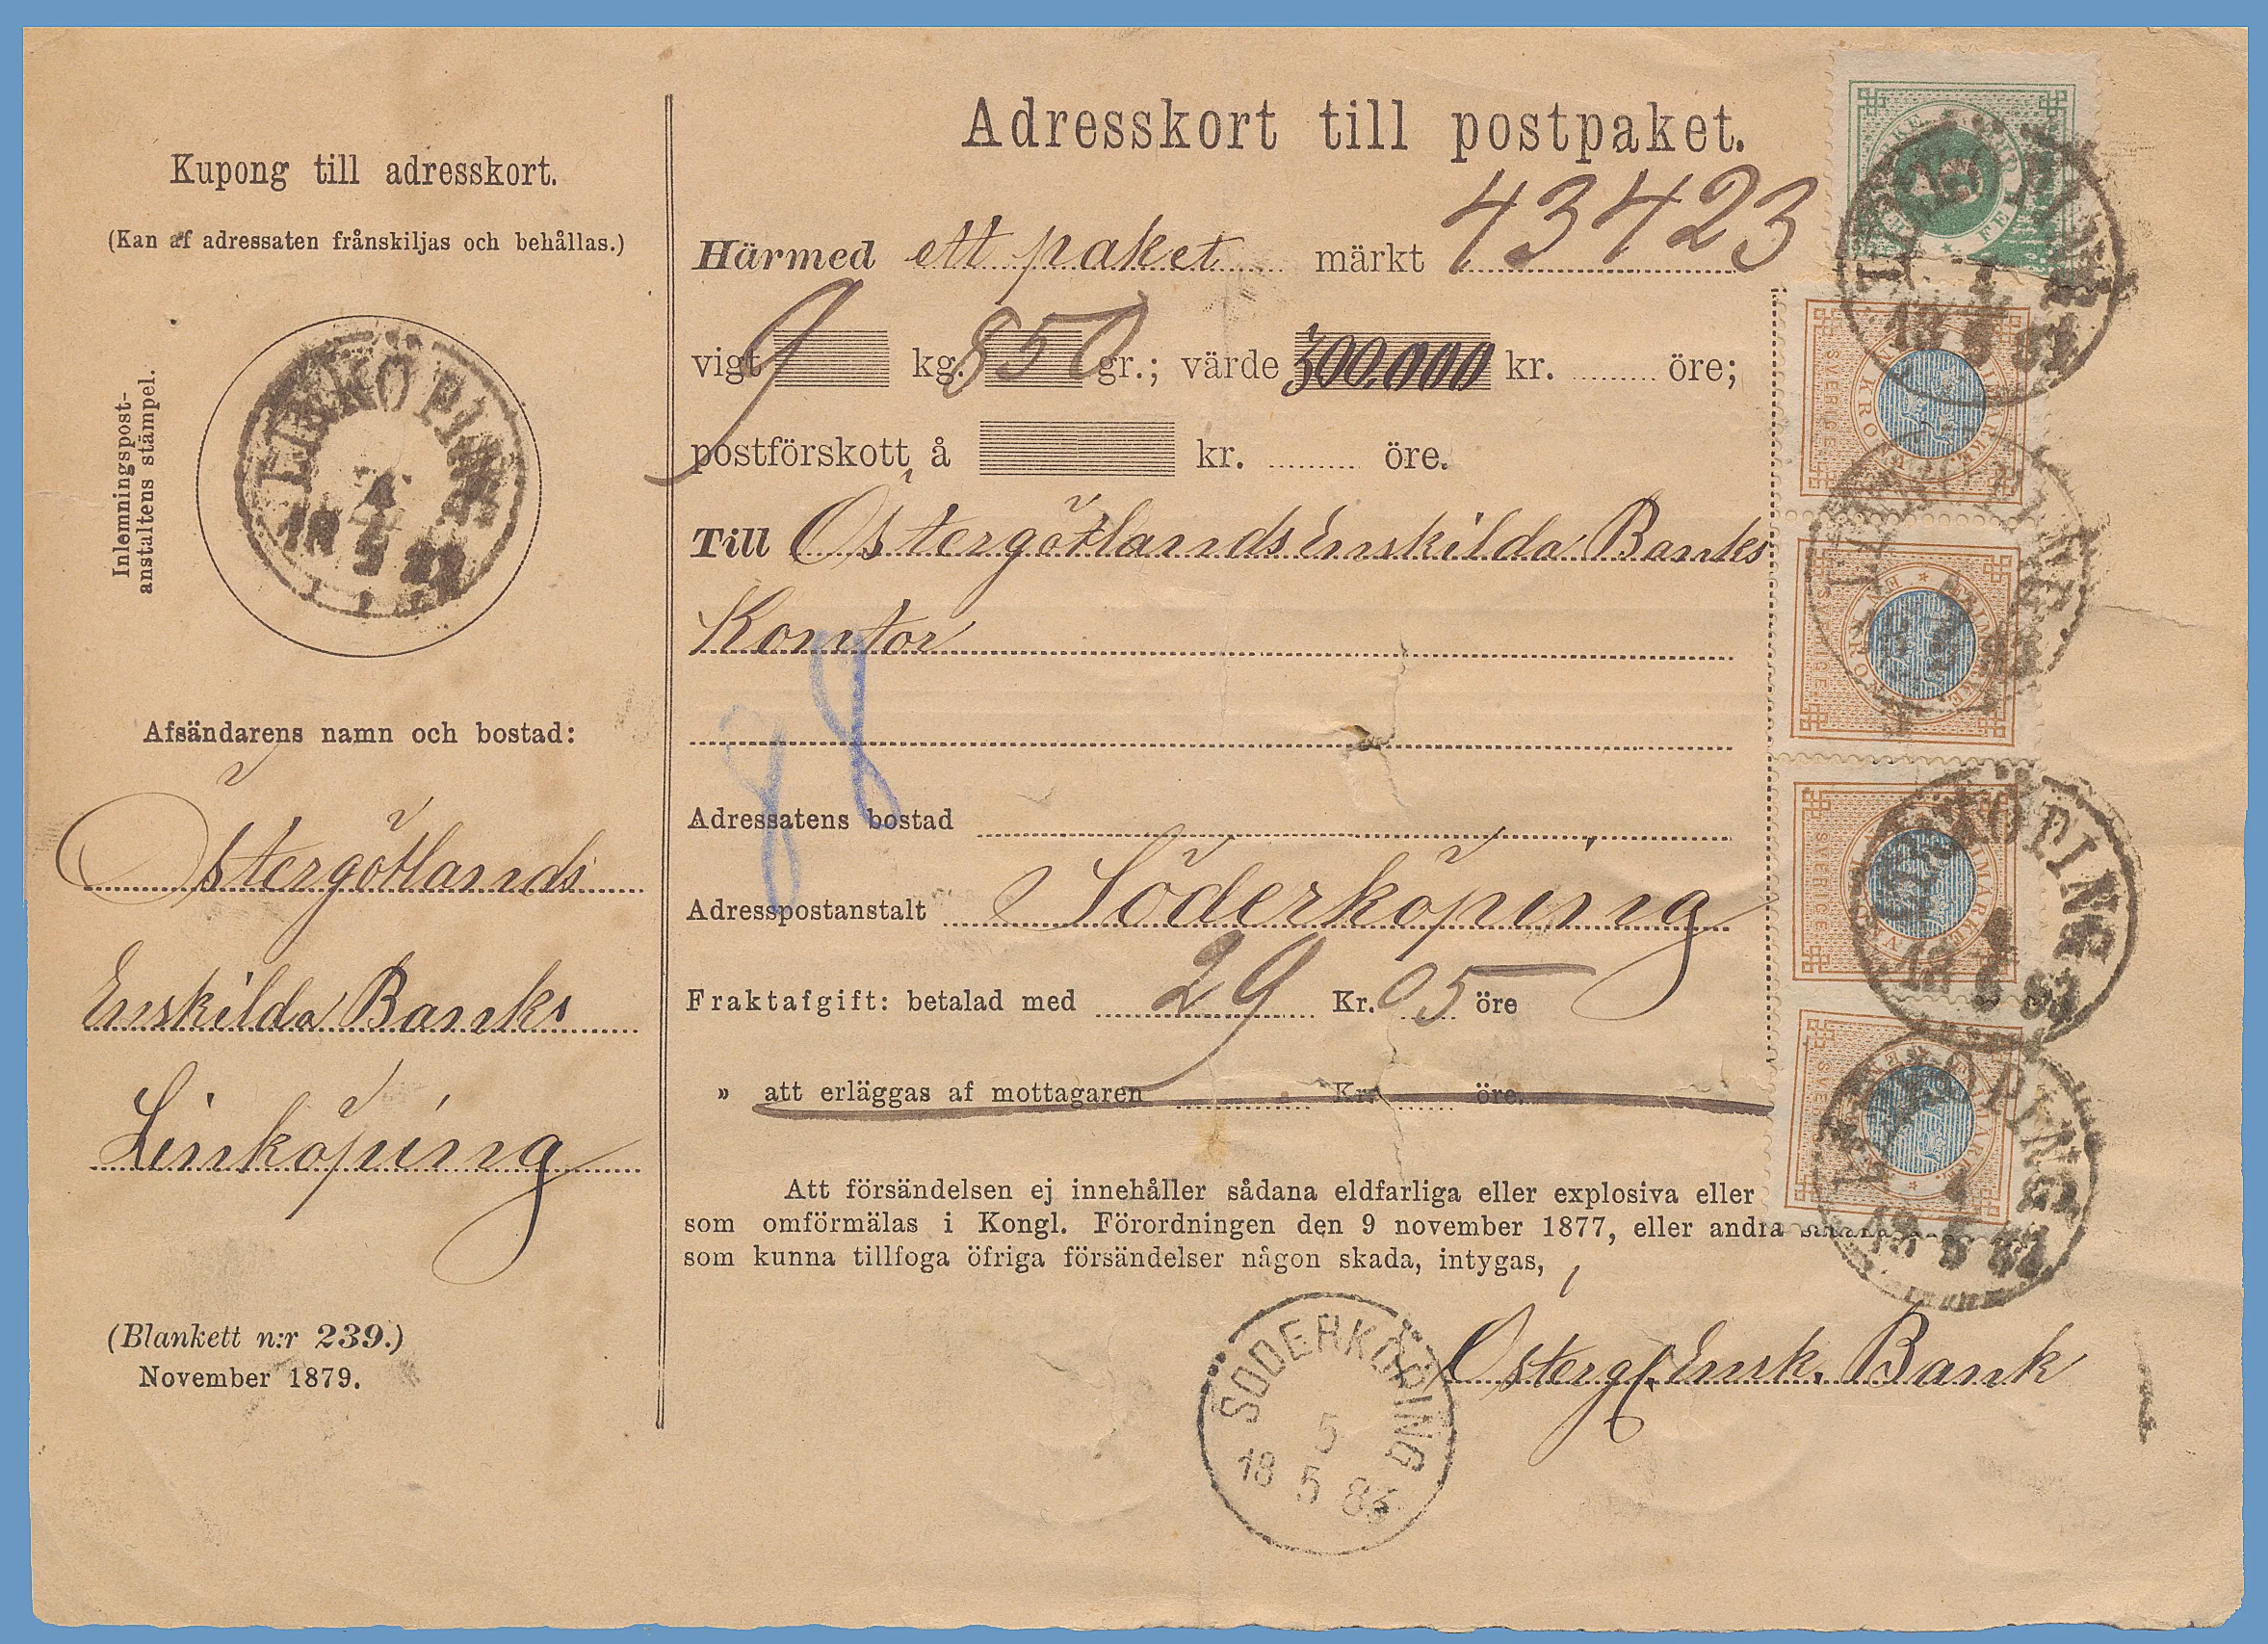 Kupong till adresskort.
(Kan af adressaten frånskiljas och behållas.)
Inlemningspost-
anstaltens stämpel.
4
18 5 83
Afsändarens namn och bostad:
Östergötlands
Enskilda Banks
Linköping
(Blankett n:r 239.)
November 1879.
Adresskort till postpaket.
Härmed ett paket märkt 43423
vigt 9 kg. 850 gr.; värde 300,000 kr. öre;
postförskott å kr. öre.
Till Östergötlands Enskilda Banks
Kontor
98
Adressatens bostad
Adresspostanstalt Söderköping
Fraktafgift: betalad med 29 Kr. 05 öre
» att erläggas af mottagaren Kr. öre.
Att försändelsen ej innehåller sådana eldfarliga eller explosiva eller
som omförmälas i Kongl. Förordningen den 9 november 1877, eller andra
som kunna tillfoga öfriga försändelser någon skada, intygas,
Östergl. Ensk. Bank
SÖDERKÖPING
5
18 5 83
SVERIGE
FRIMÄRKE
SVERIGE
FRIMÄRKE
SVERIGE
FRIMÄRKE
LINKÖPING
4
18 5 83